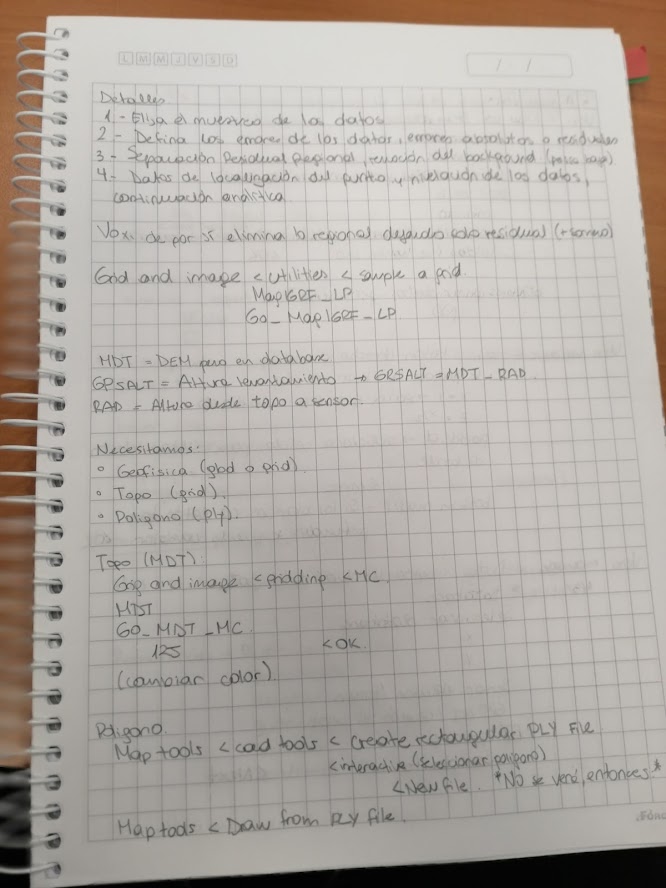 L M M J V S D
/ /
Detalles
1 - Elija el muestreo de los datos
2 - Defina los errores de los datos, errores absolutos o residuales
3 - Separación Residual Regional, remoción del background (paso bajo)
4 - Datos de localización del punto y nivelación de los datos,
continuación analítica
Voxi de por si elimina lo regional dejando solo residual
Grid and image < utilities < sample a grid.
MapIGRF_LP
GO_MapIGRF_LP
MDT = DEM pero en database
GPSALT = Altura levantamiento → GPSALT = MDT - RAD
RAD = Altura desde topo a sensor.
Necesitamos:
° Geofísica (gbd o grid)
° Topo (grid).
° Poligono (ply).
Topo (MDT)
Grip and image < gridding < MC
MDT
GO_MDT_MC.
125 < OK.
(cambiar color)
Poligono.
Map tools < cad tools < Create rectangular PLY File
< interactive (seleccionar poligono)
< New file. *No se verá, entonces*
Map tools < Draw from PLY file.